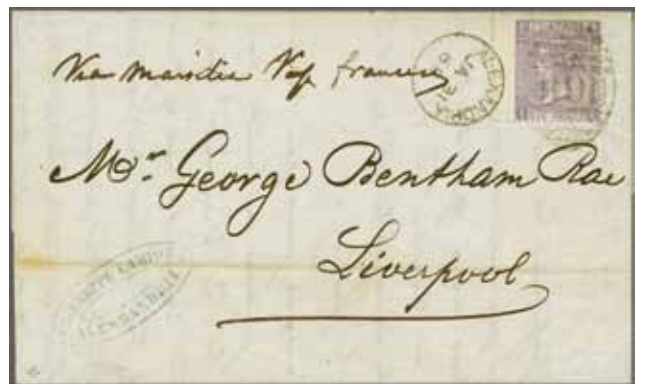 Via Marseilles Vap francese
ALEXANDRIA
JA 31
Mr. George Bentham Rae
Liverpool
ALEXANDRIA